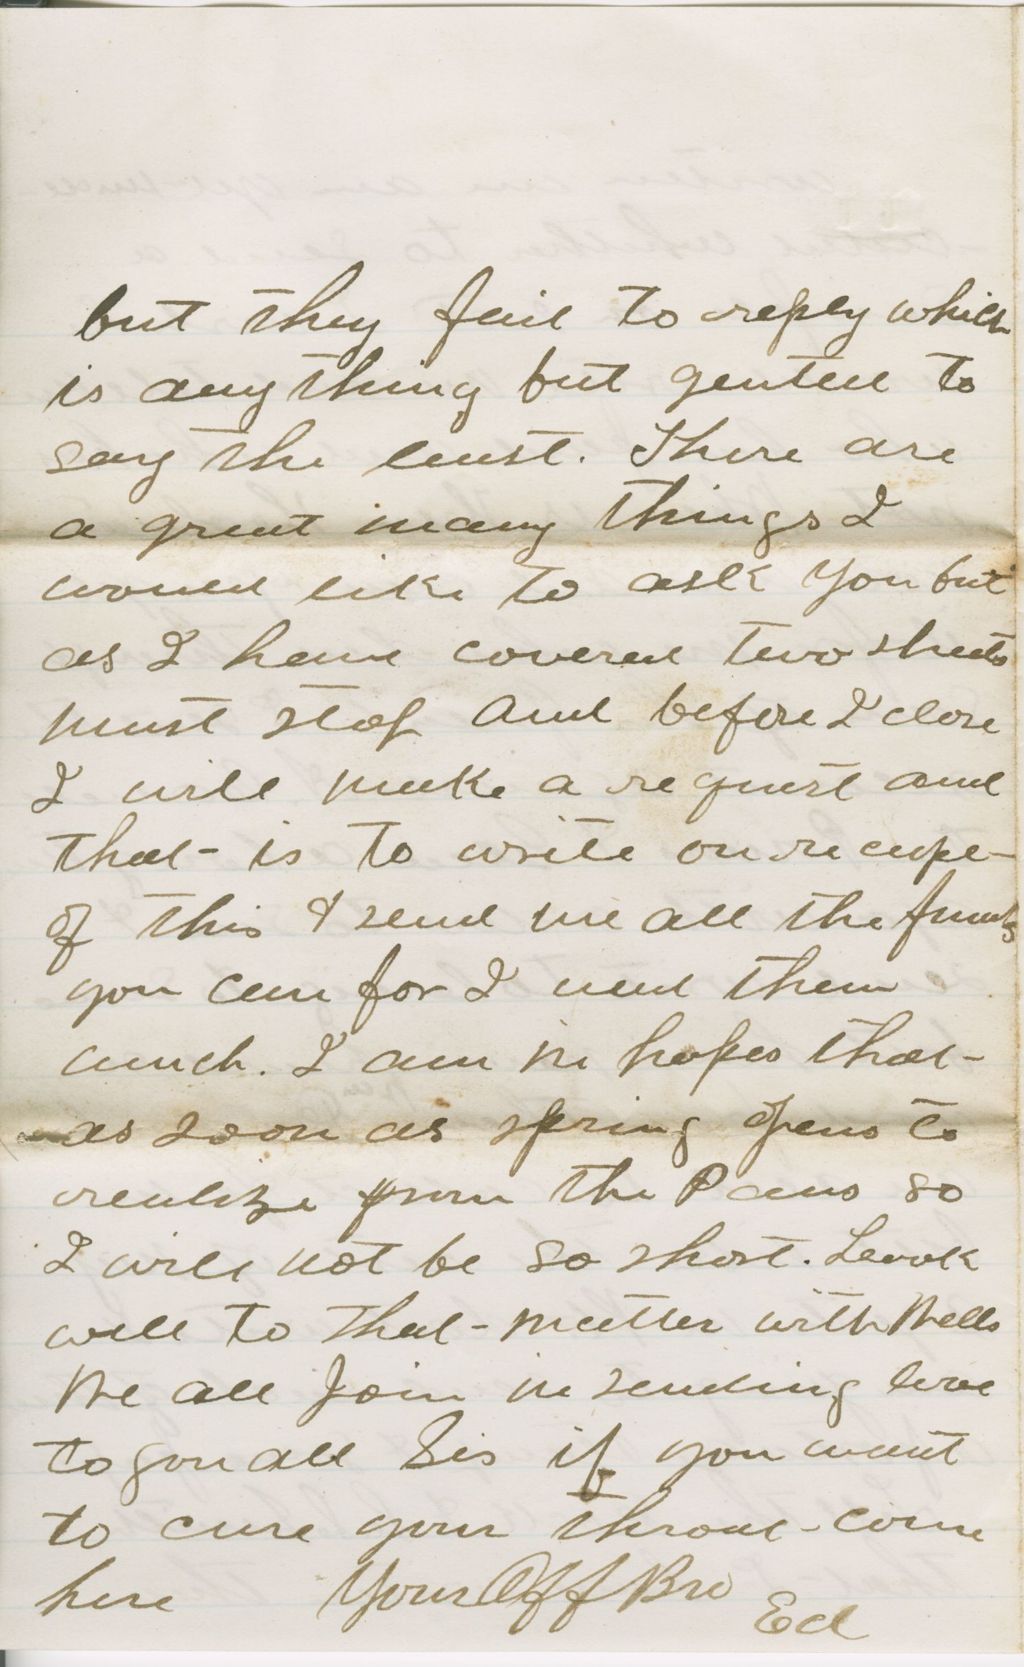 but they fail to reply which
is anything but genteel to
say the least. There are
a great many things I
would like to ask you but
as I have covered two sheets
must stop and before I close
I will make a request and
that is to write on receipt
of this & send me all the funds
you can for I need them
much. I am in hopes that
as soon as spring opens to
realize from the Pans so
I will not be so short. Loook
well to that matter with Wells
We all Join in sending love
to you all Sis if you want
to cure your throat come
here Your Aff Bro
Ed